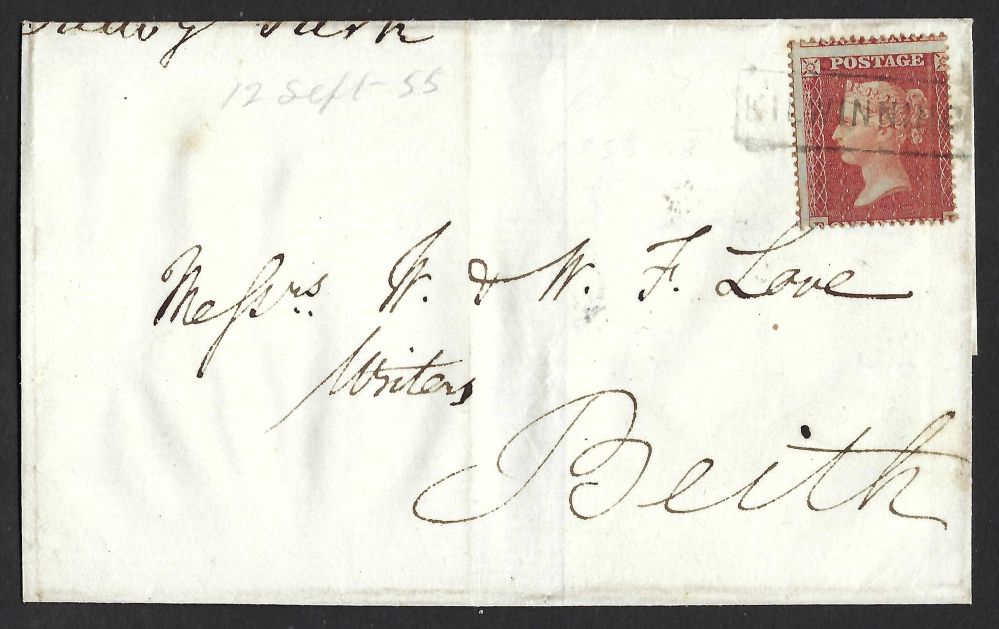 Park
12 Sept 55
POSTAGE
KILWINNING
Messrs. W. & W. F. Love
Writers
Beith